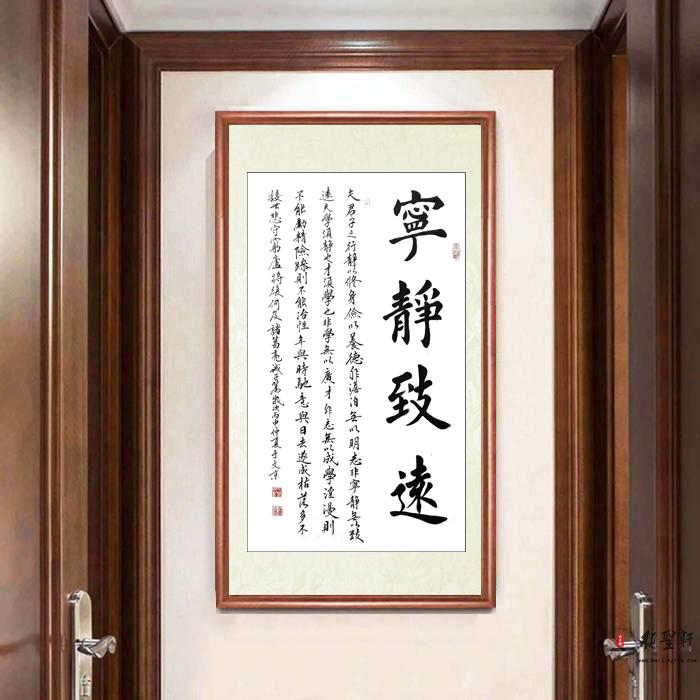 寧靜致遠
夫君子之行靜以修身儉以養德非澹泊無以明志非寧靜無以致
遠夫學須靜也才須學也非學無以廣才非志無以成學淫漫則
不能勵精險躁則不能冶性年與時馳意與日去遂成枯落多不
接世悲守窮廬將復何及諸葛亮誡子篇歲次丙申仲夏于文京